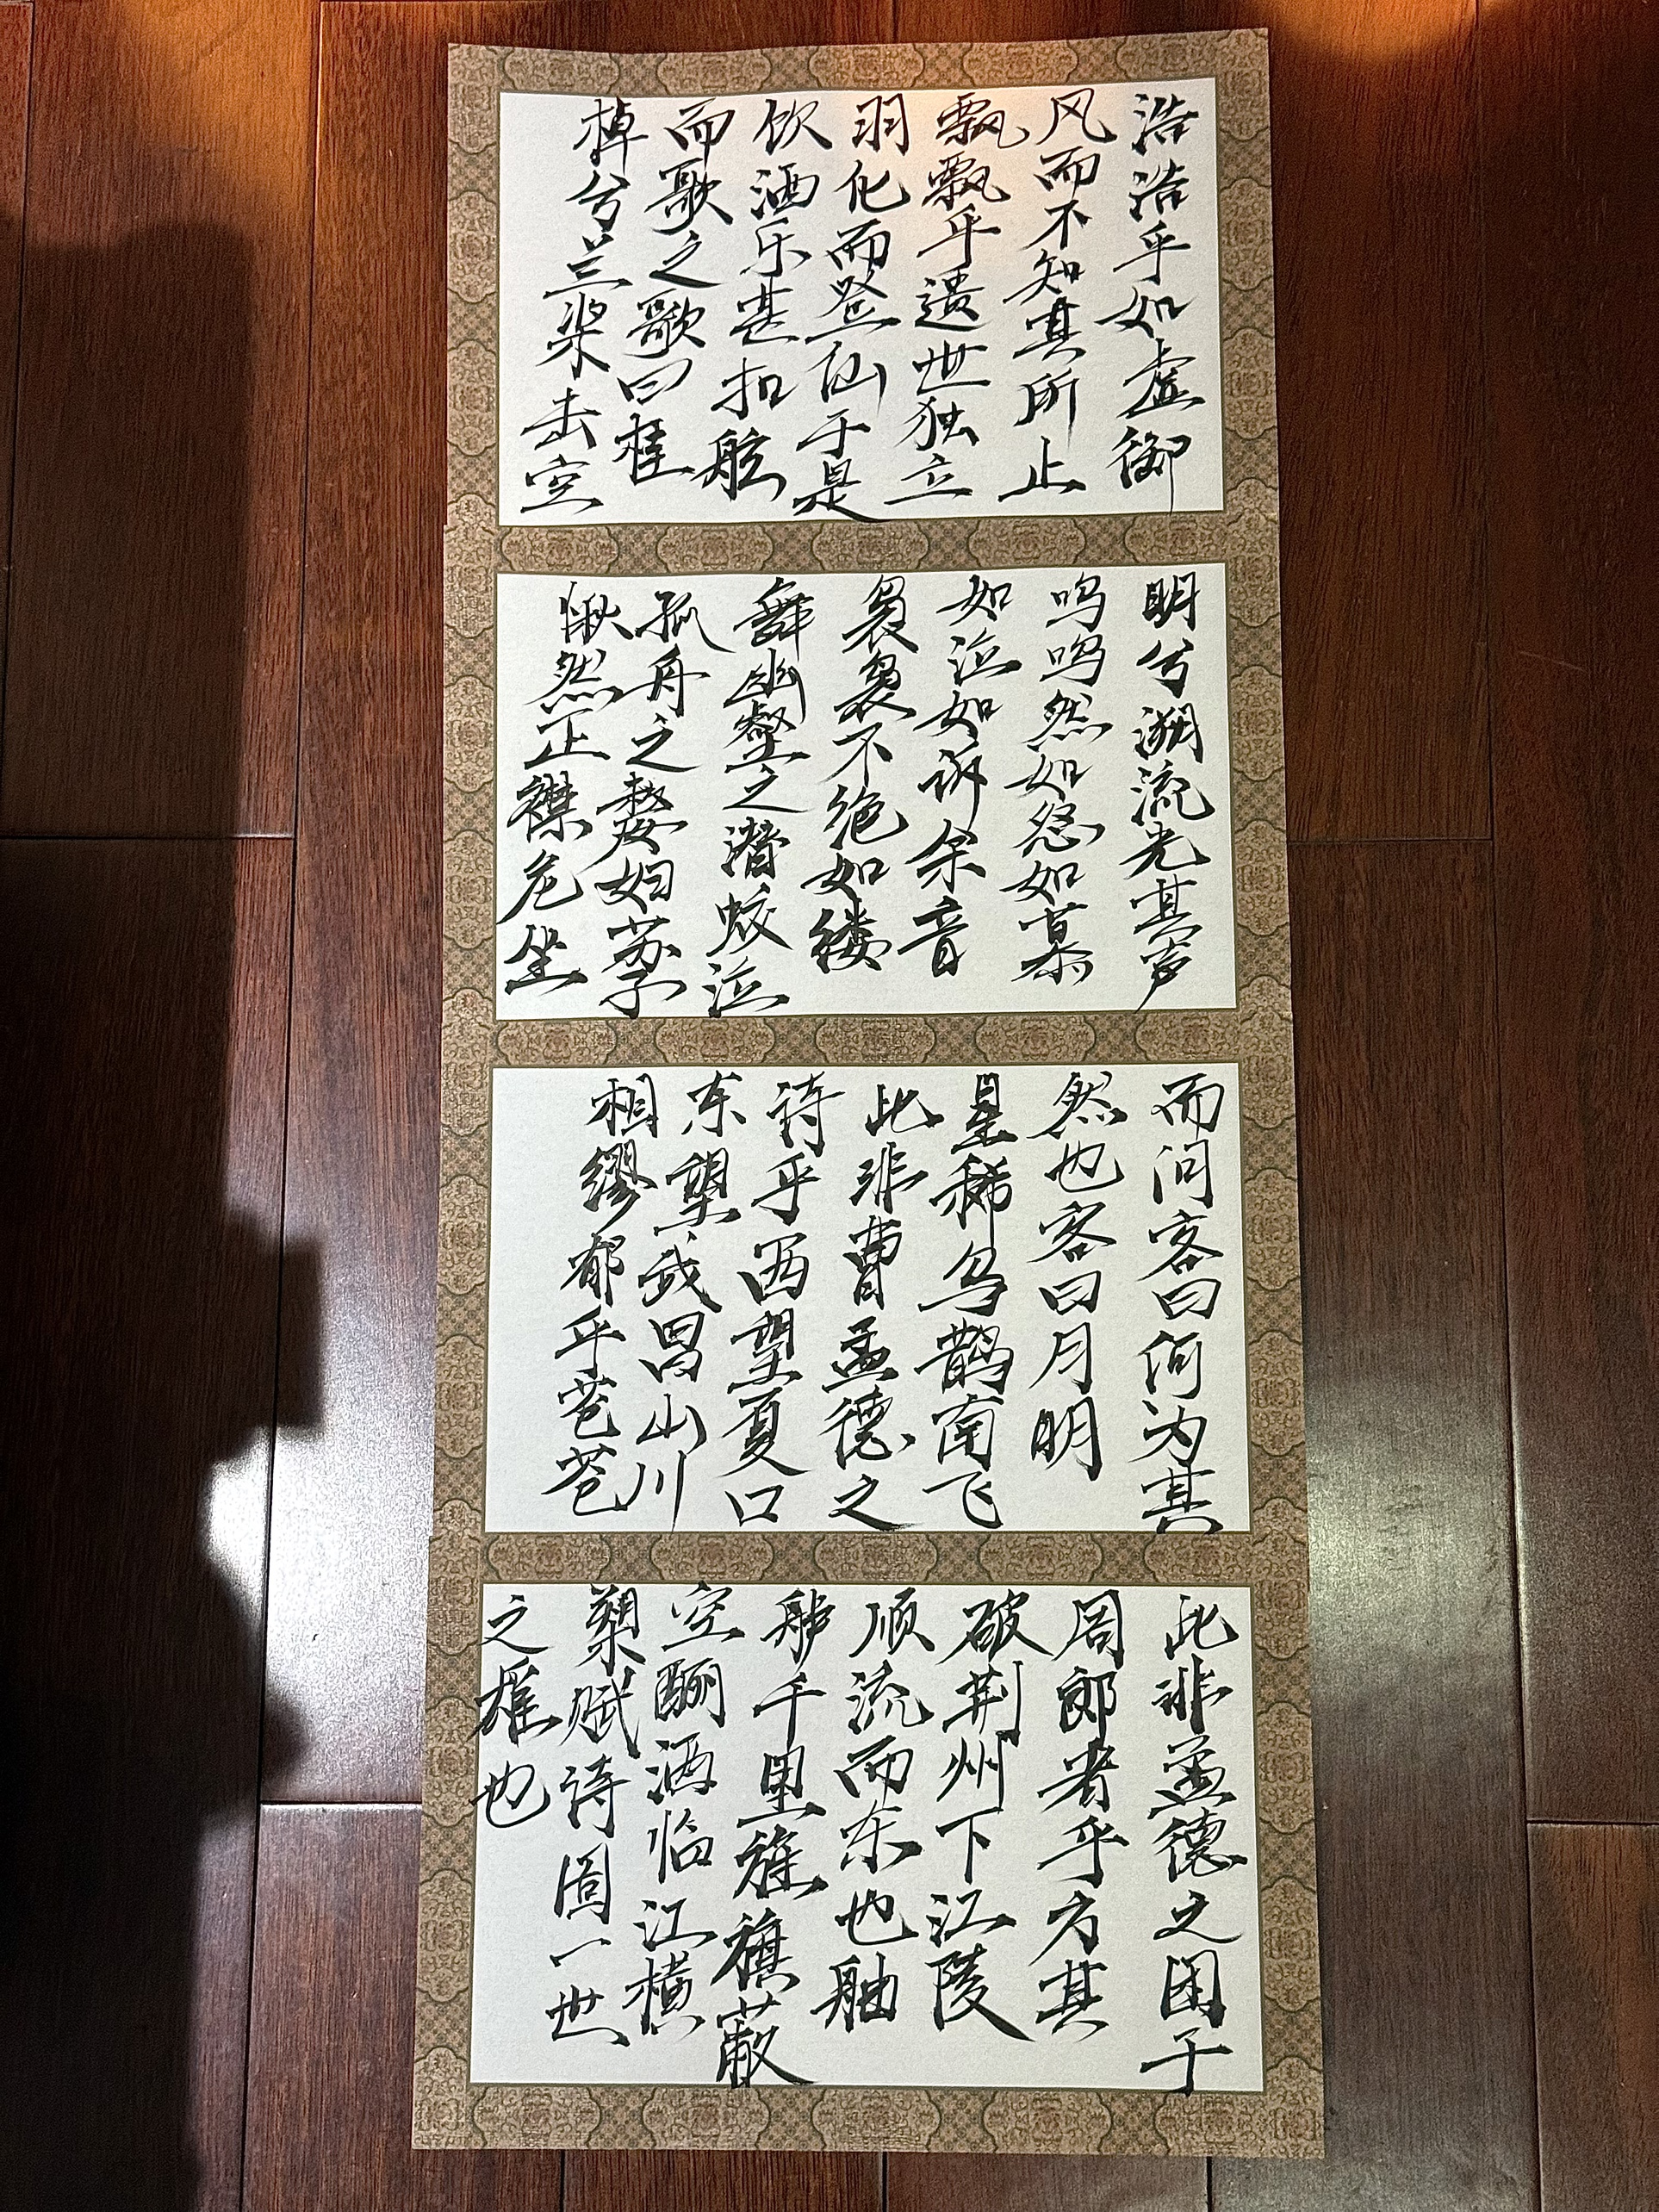 浩浩乎如虚御
风而不知其所止
飘飘乎遗世独立
羽化而登仙于是
饮酒乐甚扣舷
而歌之歌曰桂
棹兮兰桨击空
明兮溯流光其声
呜呜然如怨如慕
如泣如诉余音
袅袅不绝如缕
舞幽壑之潜蛟泣
孤舟之嫠妇苏子
愀然正襟危坐
而问客曰何为其
然也客曰月明
星稀乌鹊南飞
此非曹孟德之
诗乎西望夏口
东望武昌山川
相缪郁乎苍苍
此非孟德之困于
周郎者乎方其
破荆州下江陵
顺流而东也舳
舻千里旌旗蔽
空酾酒临江横
槊赋诗固一世
之雄也